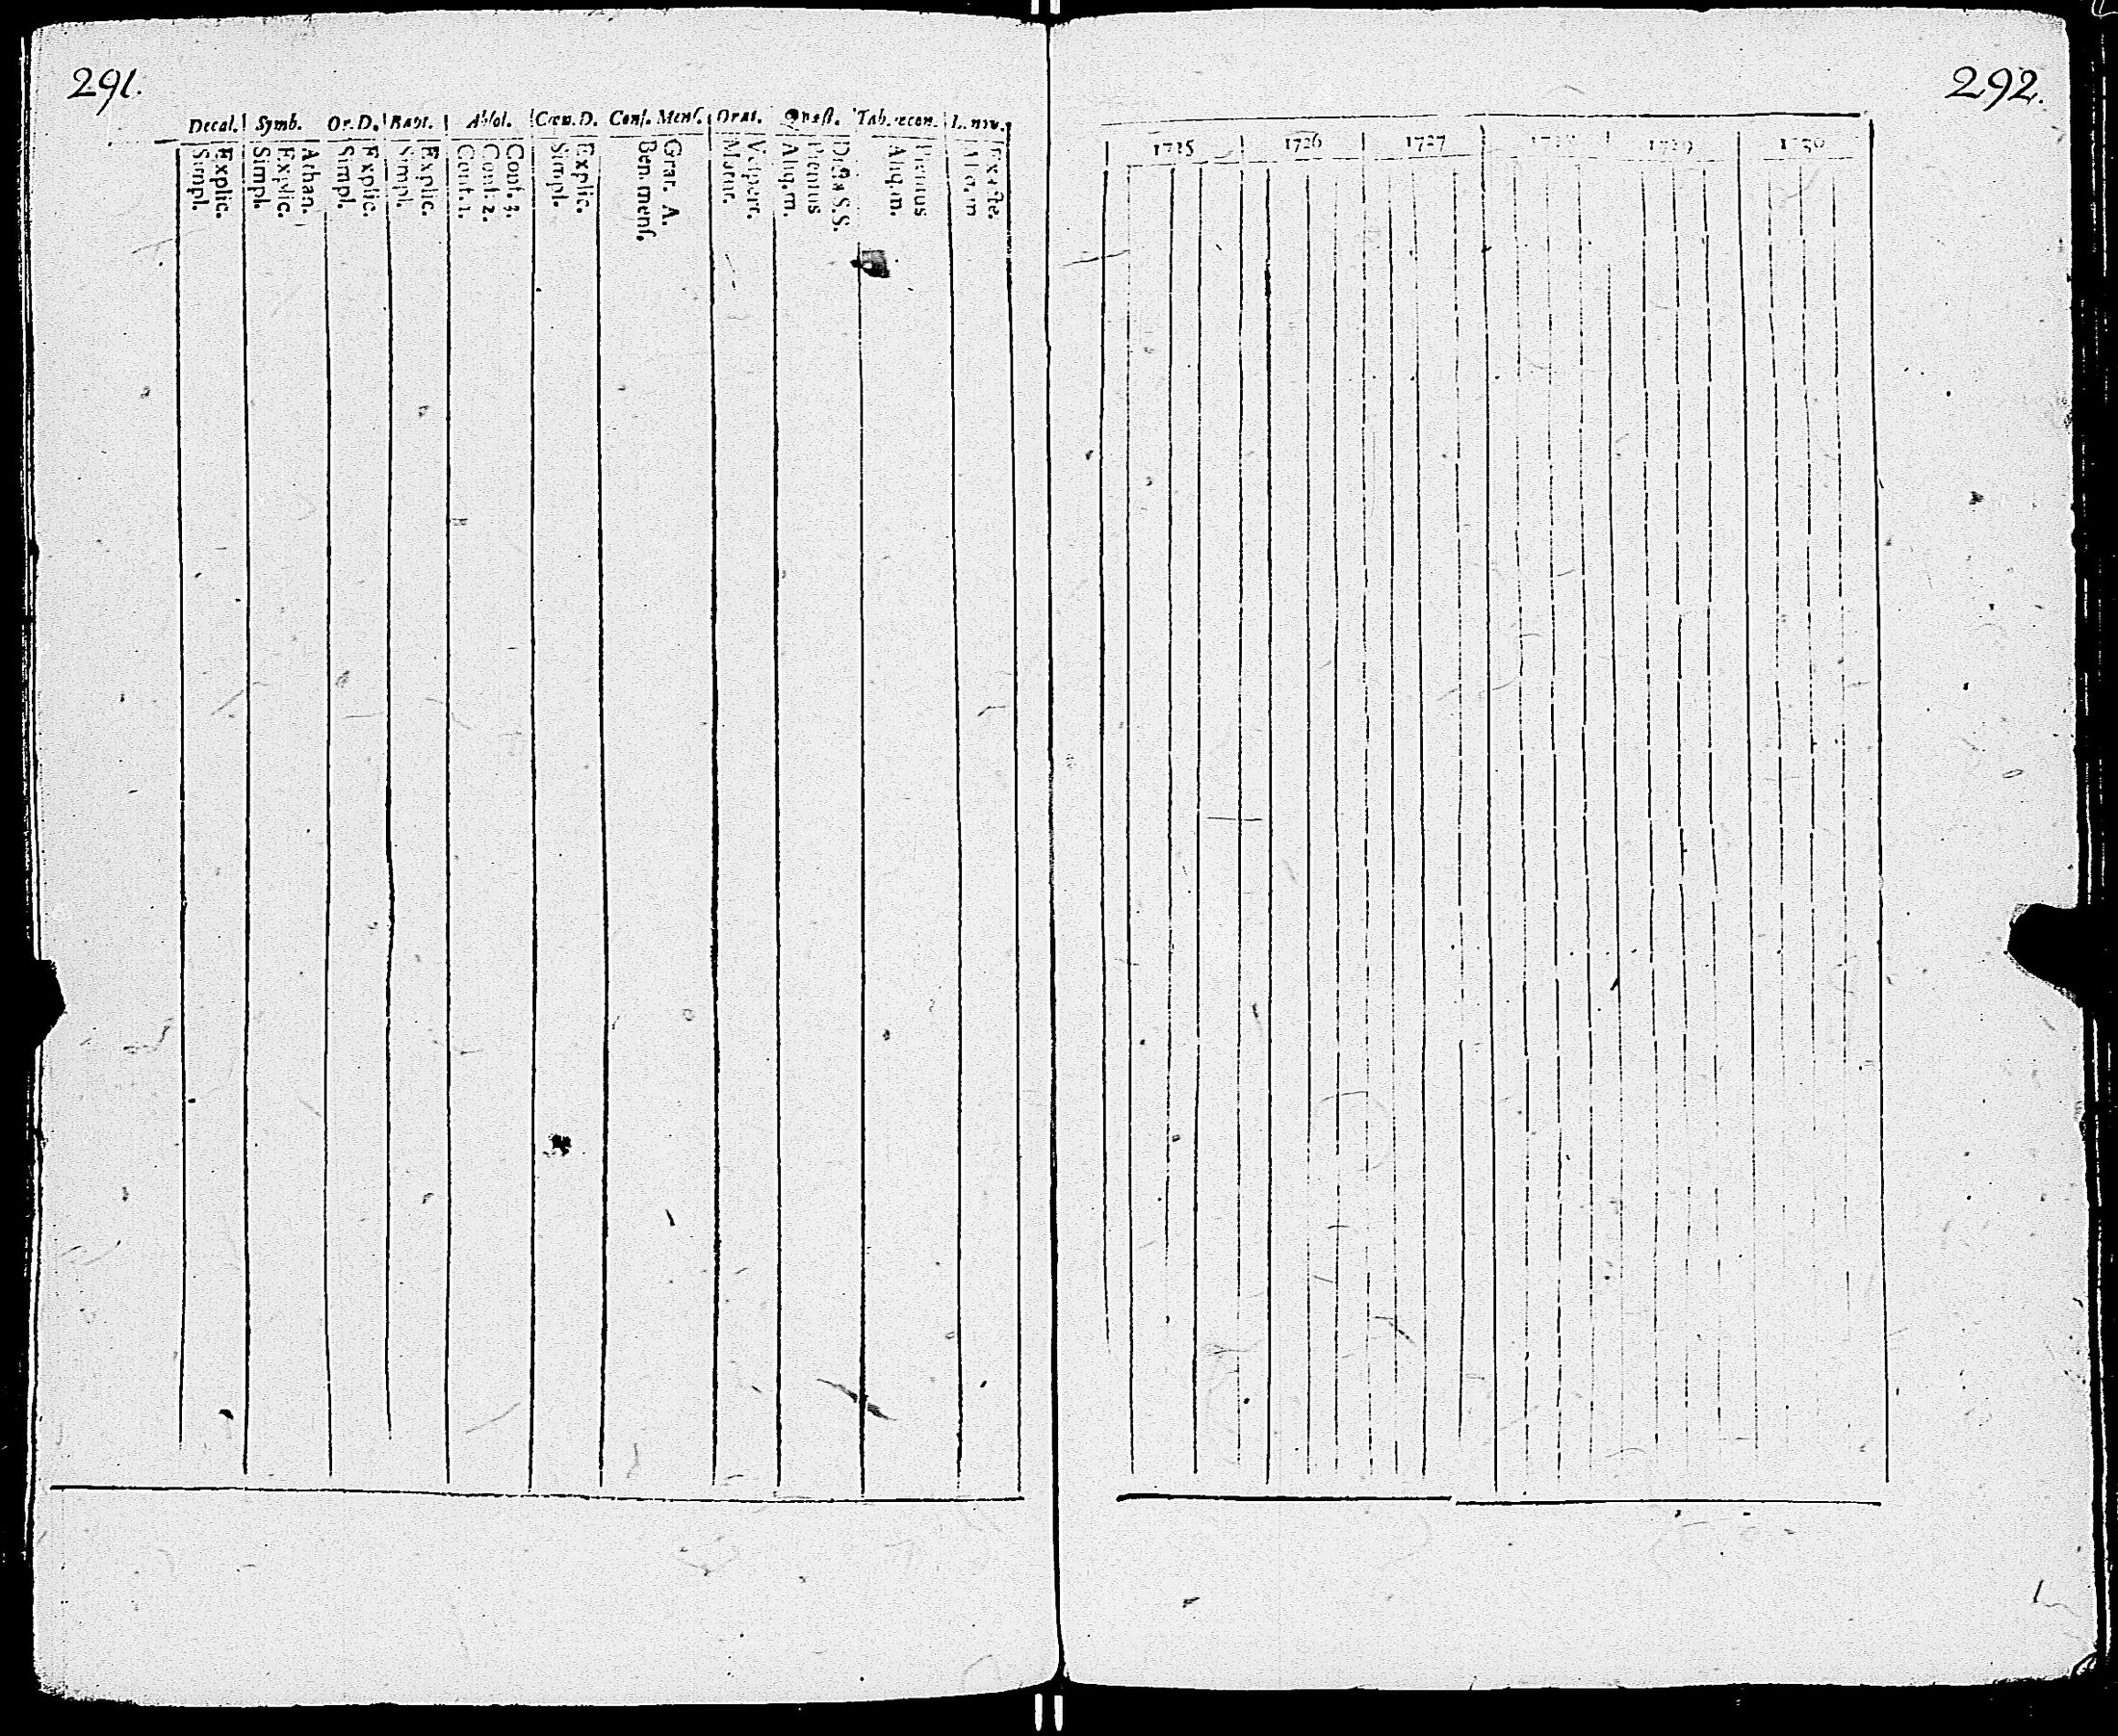 291.
Decal. Symb. Or. D. Bapt. Absol. Cœn. D. Conf. Menſ. Orat. Quæſt. Tab. œcon. L. in v.
Simpl. Explic. Simpl. Explic. Athan. Simpl. Explic. Simpl. Explic. Conf. 1. Conf. 2. Conf. 3. Simpl. Explic. Ben. menſ. Grat. A. Matut. Veſpert. Aliq. m. Plenius Dicta S.S. Aliq. m. Plenius Aliq. m Exacte.
292.
1725 1726 1727 1728 1729 1730